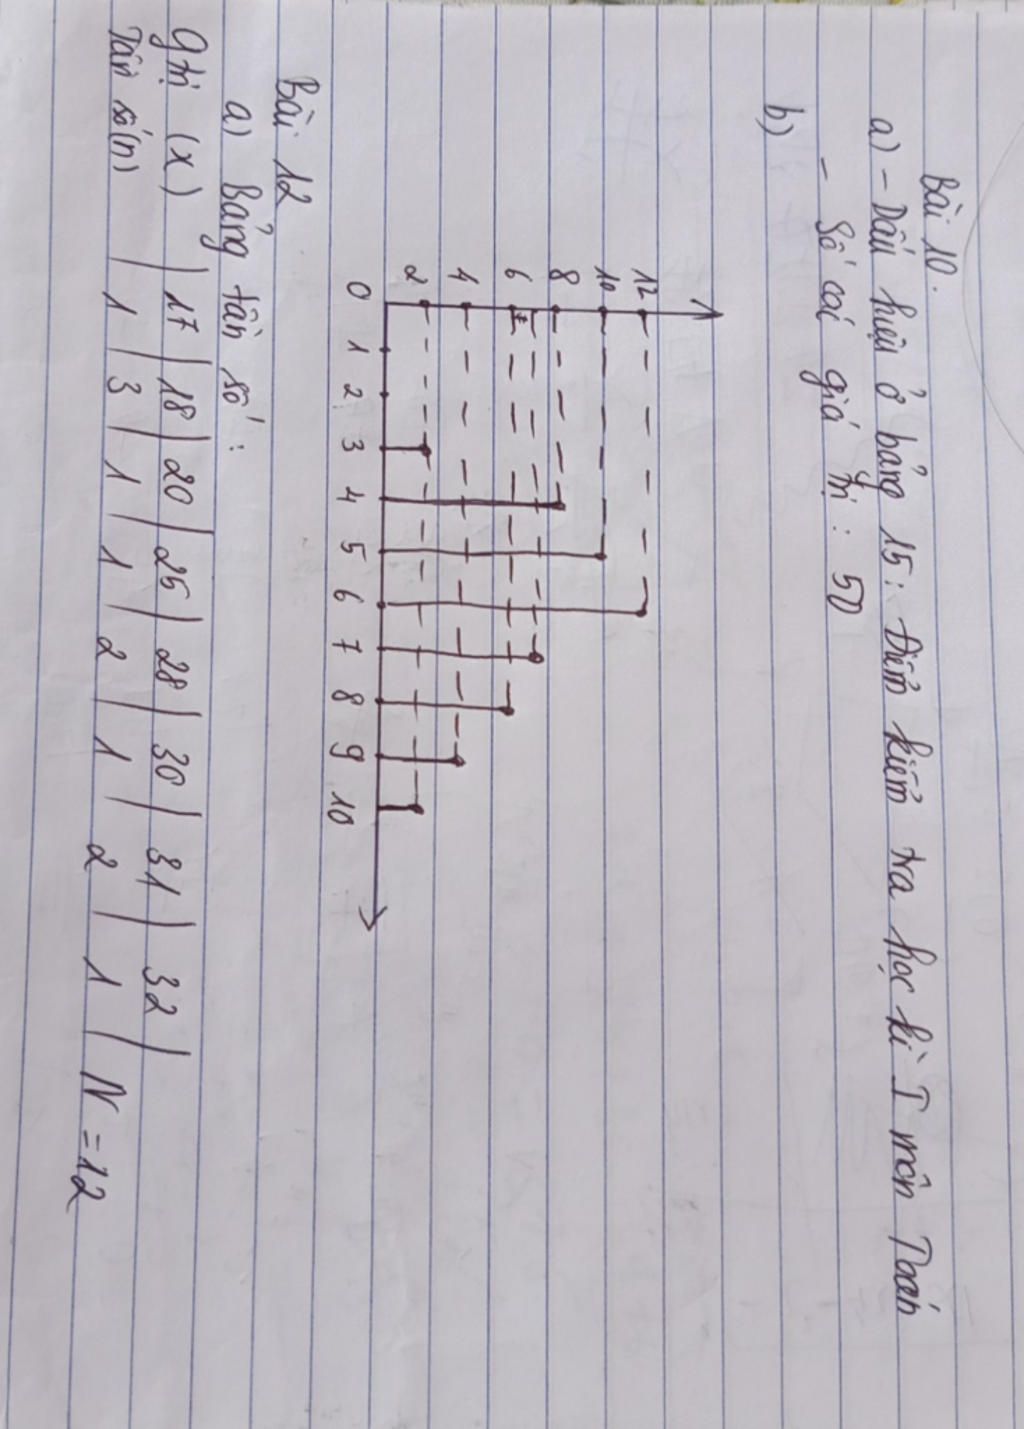 Bài 10.
a) - Dấu hiệu ở bảng 15: Điểm kiểm tra học kì I môn Toán
- Số các giá trị : 50
b)
12
10
8
6
4
2
0 1 2 3 4 5 6 7 8 9 10
Bài 12
a) Bảng tần số :
Gtrị (x) | 17 | 18 | 20 | 25 | 28 | 30 | 31 | 32 |
Tần số (n) | 1 | 3 | 1 | 1 | 2 | 1 | 2 | 1 | N = 12